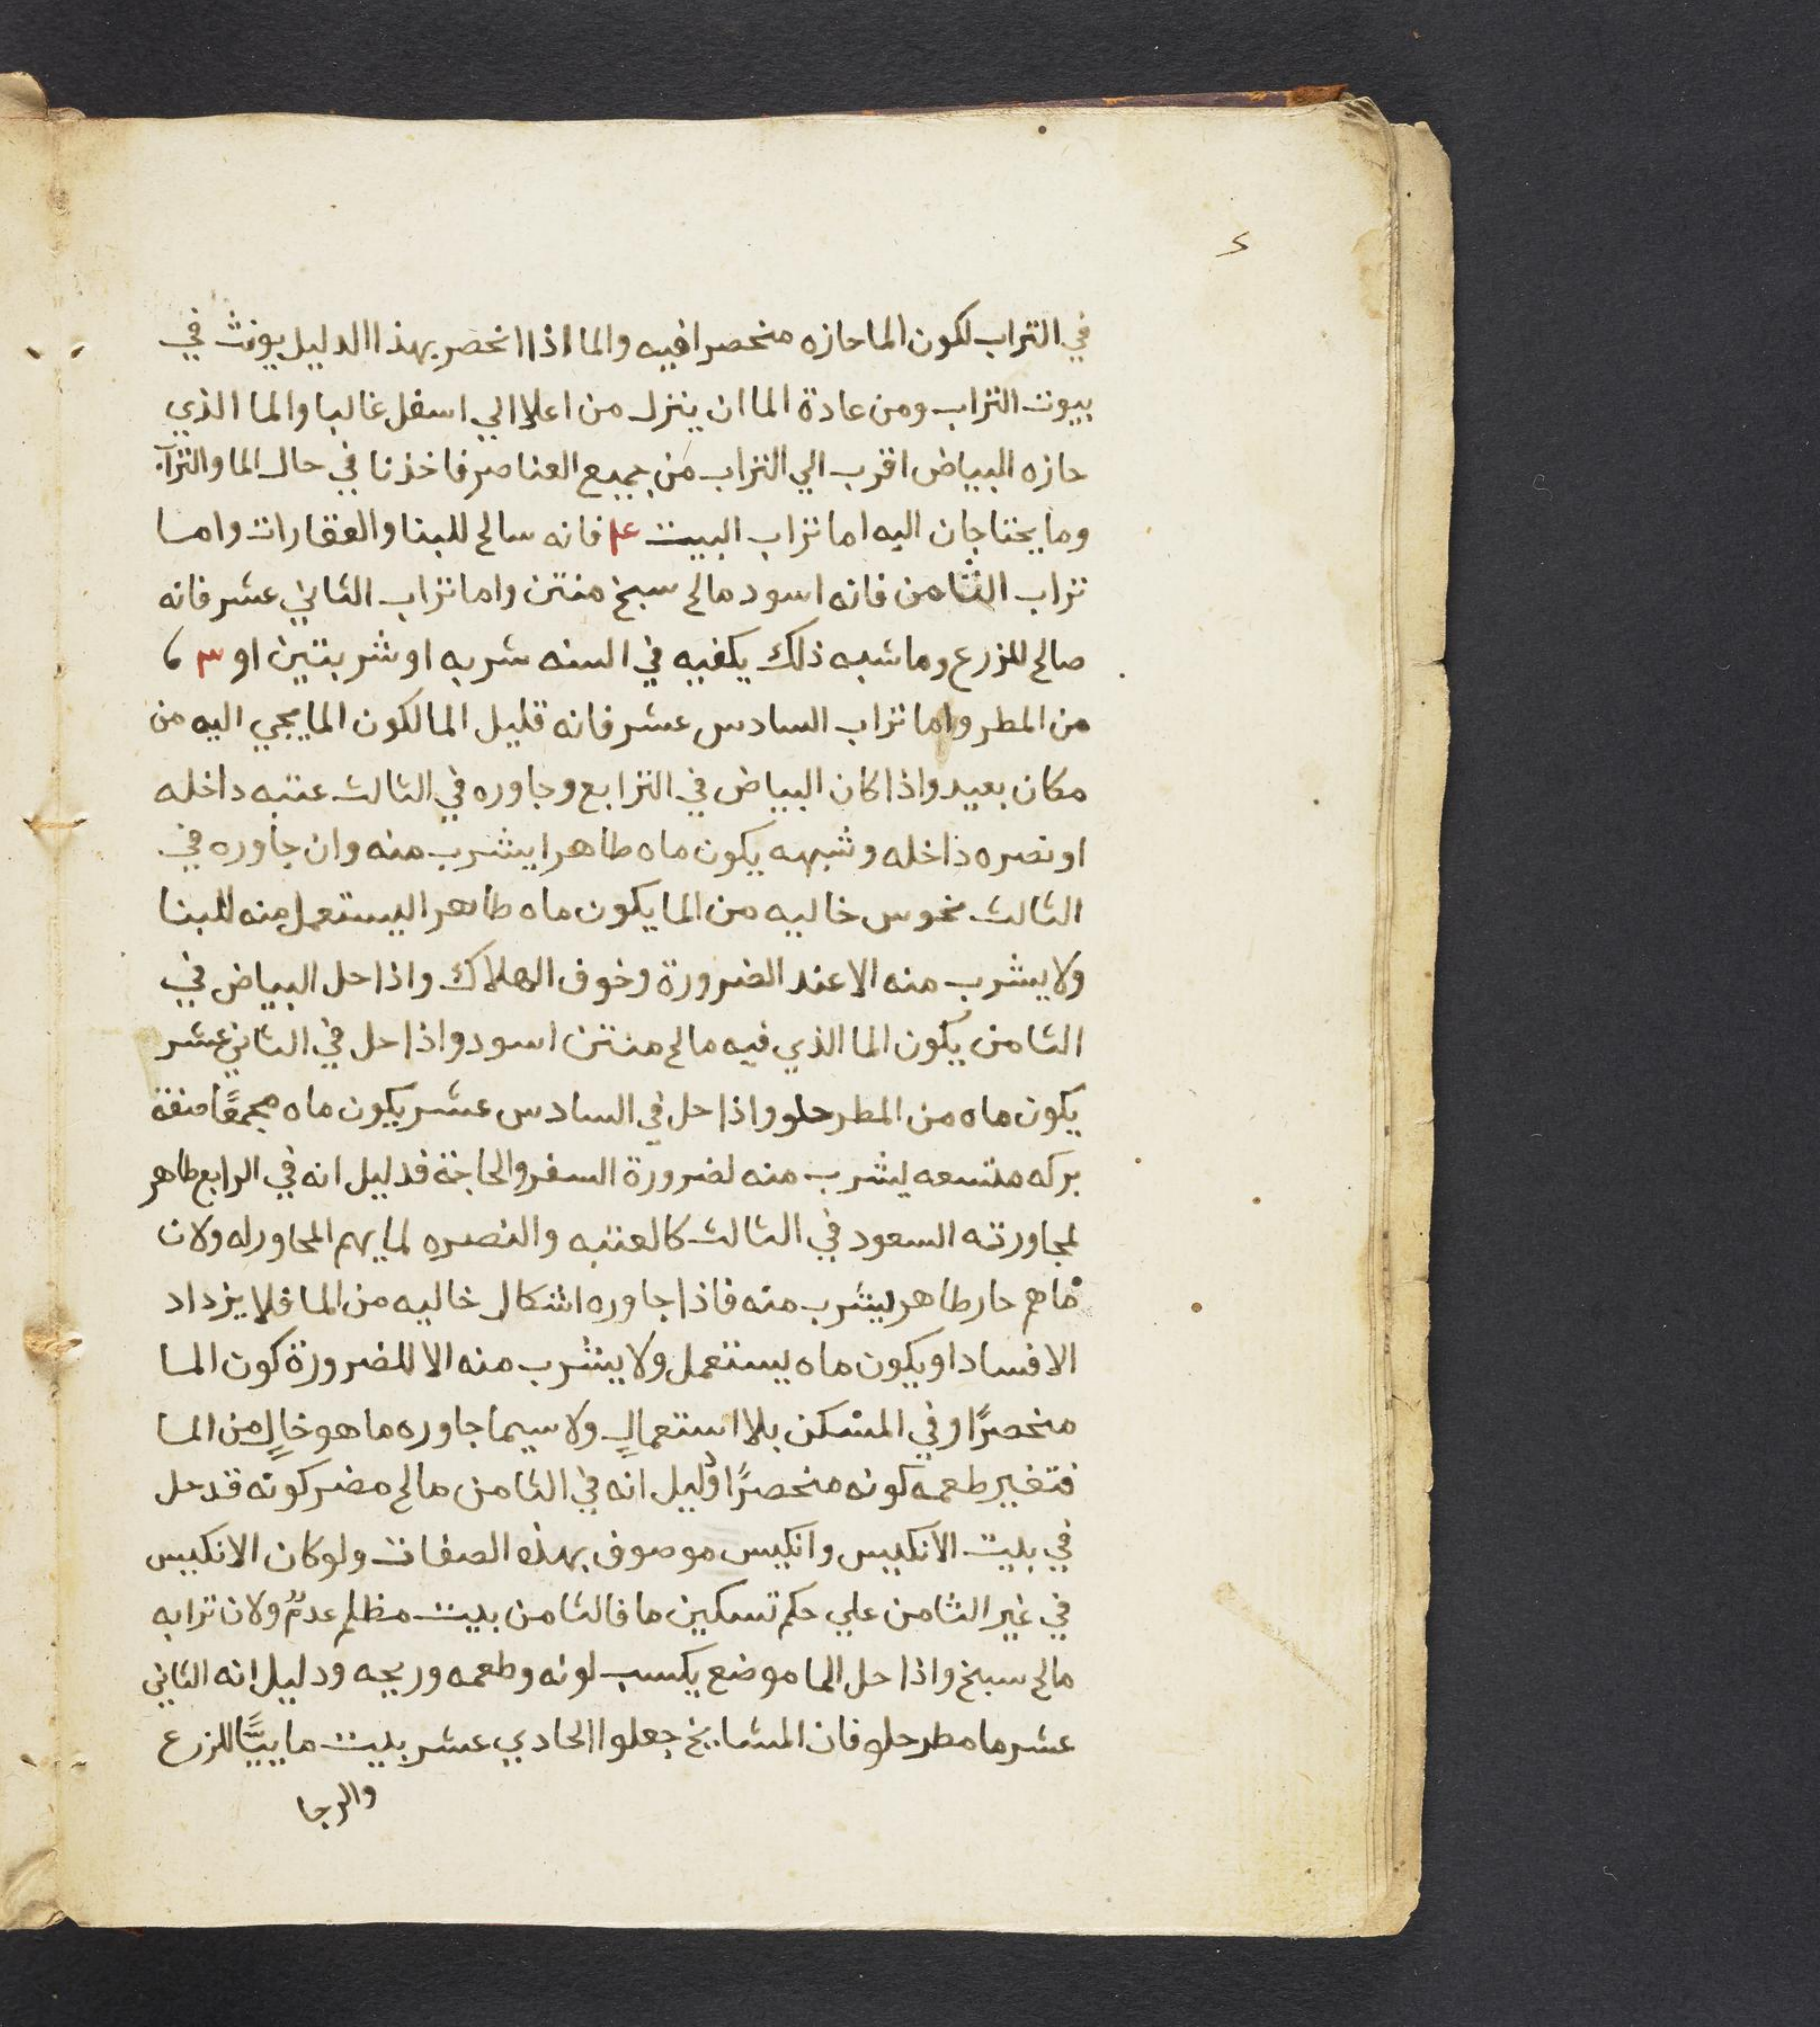 ٤
في التراب لكون الما حازه منحصرا فيه والما اذا انحصر بهذا الدليل يونث في
بيوت التراب ومن عادة الما ان ينزل من اعلا الي اسفل غالبا والما الذي
حازه البياض اقرب الي التراب من جميع العناصر فاخذنا في حال الما والتراب
وما يحتاجان اليه اما تراب البيت ع۴ فانه سالح للبنا والعقارات واما
تراب الثامن فانه اسود مالح سبخ منتن واما تراب الثاني عشر فانه
صالح للزرع وما شبه ذلك يكفيه في السنه شربه او شربتين او ٣
من المطر واما تراب السادس عشر فانه قليل الما لكون الما يجي اليه من
مكان بعيد واذا كان البياض في الترابع وجاوره في الثالث عتبه داخله
او نصره داخله وشبهه يكون ماه طاهرا يشرب منه وان جاوره في
الثالث نحوس خاليه من الما يكون ماه طاهرا ليستعمل منه للبنا
ولا يشرب منه الا عند الضرورة وخوف الهلاك واذا حل البياض في
الثامن يكون الما الذي فيه مالح منتن اسود واذا حل في الثاني عشر
يكون ماه من المطر حلو واذا حل في السادس عشر يكون ماه مجمعًا
بركه متسعه ليشرب منه لضرورة السفر والحاجة فدليل انه في الرابع طاهر
لمجاورته السعود في الثالث كالعتبه والنصره لما يهم المجاور له ولان
ماهم حار طاهر ليشرب منه فاذا جاوره اشكال خاليه من الما فلا يزداد
الا فسادا ويكون ماه يستعمل ولا يشرب منه الا للضرورة كون الما
منحصرًا وفي المسكن بلا استعمالٍ ولا سيما جاوره ما هو خالٍ من الما
فتغير طعمه كونه منحصرًا دليل انه في الثامن مالح مضر كونه قد حل
في بيت الانكيس وانكيس موصوف بهذه الصفات ولو كان الانكيس
في غير الثامن علي حكم تسكين ما فالثامن بيت مظلم عدمٌ ولان ترابه
مالح سبخ واذا حل الما موضع يكسب لونه وطعمه وريحه ودليل انه الثاني
عشر ما مطر حلو فان المشايخ جعلوا الحادي عشر بيت ما للزرع
والرجا